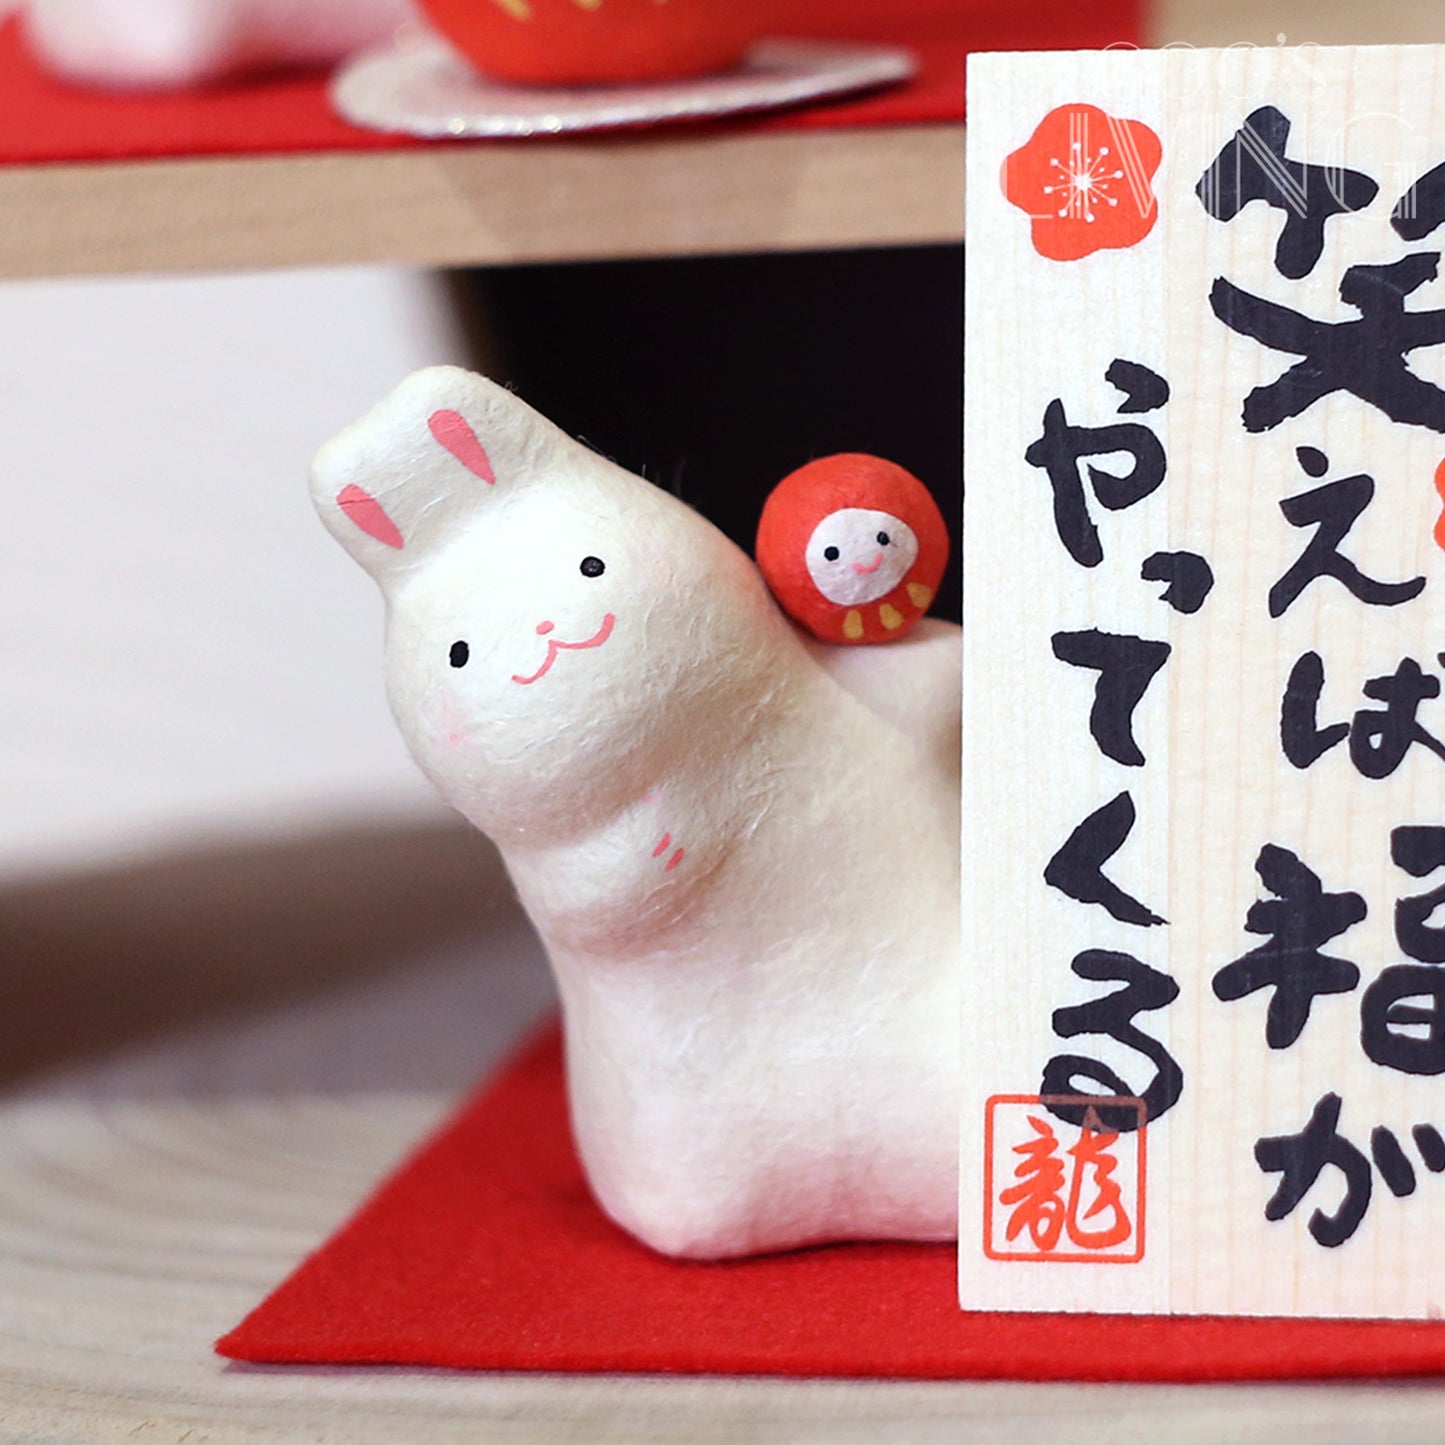 笑えば福が
やってくる
龍
soo's
LIVING